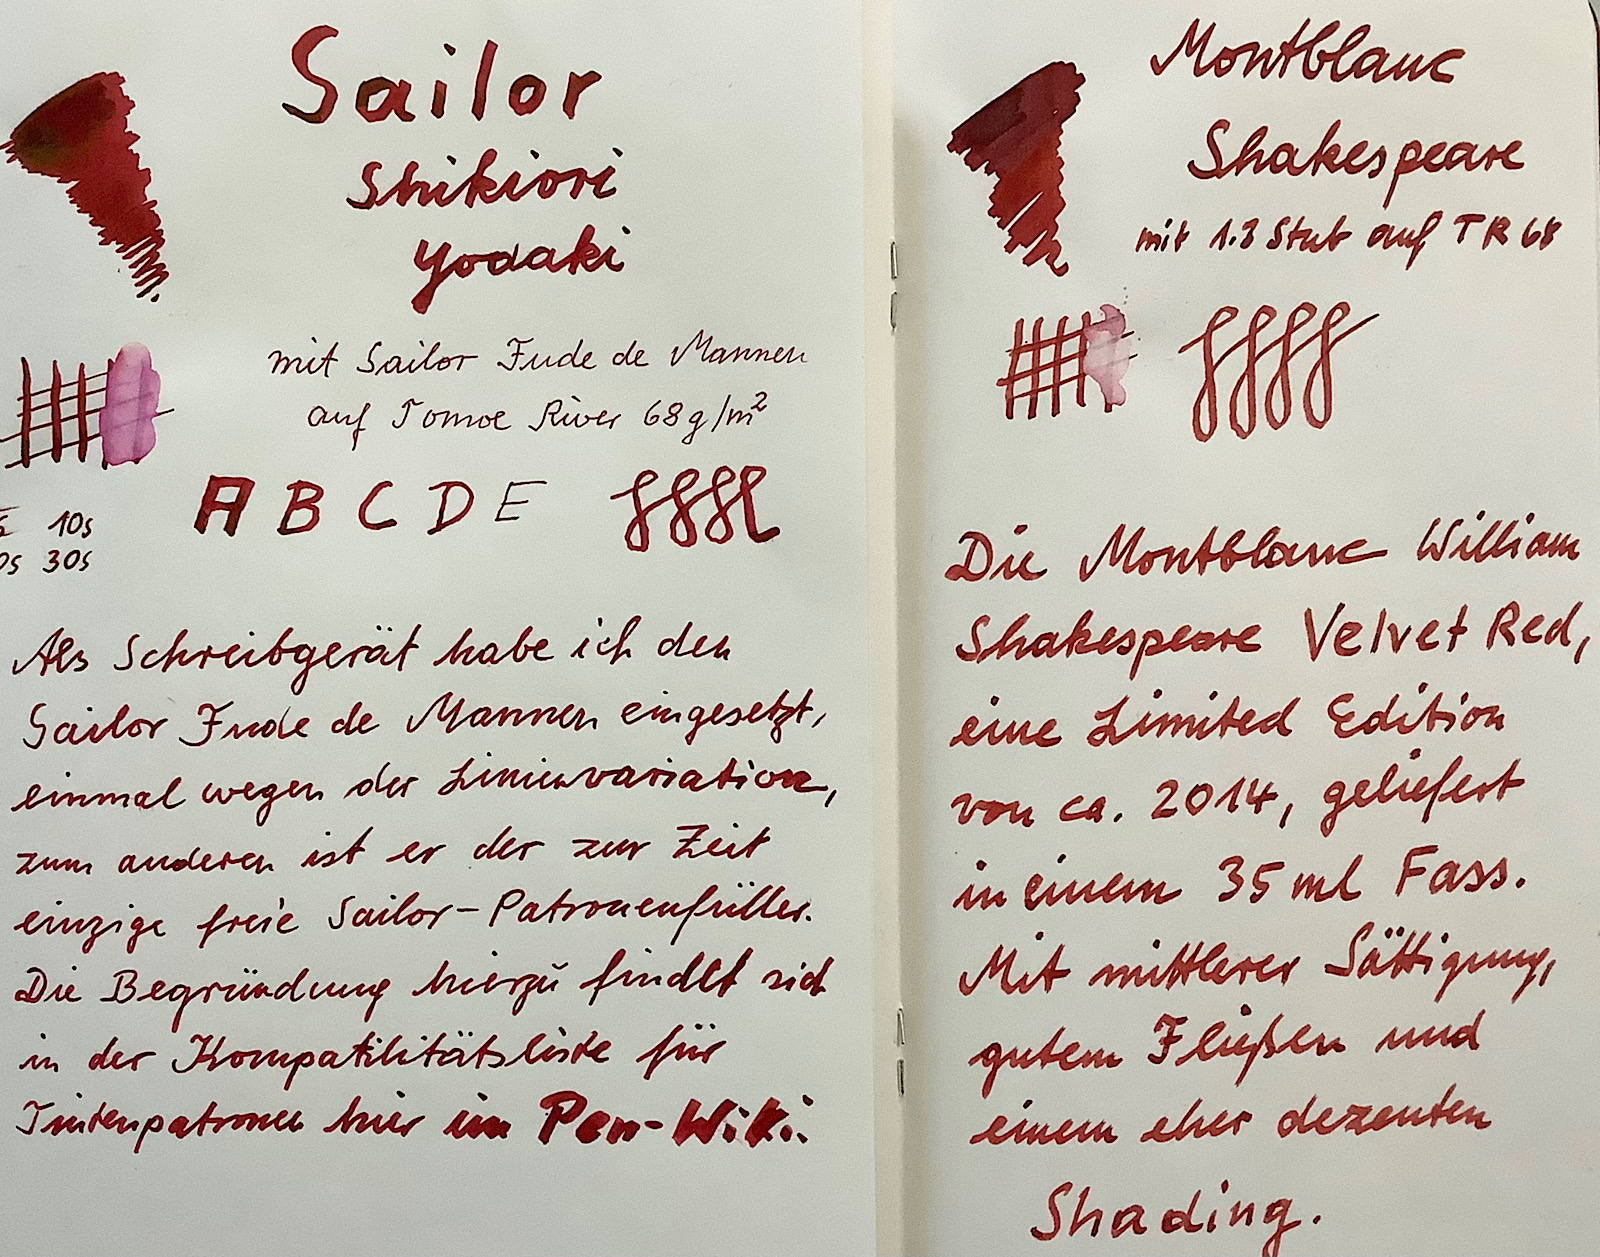 Sailor
Shikiori
Yodaki
mit Sailor Fude de Mannen
auf Tomoe River 68g/m²
A B C D E
10s
30s
Als Schreibgerät habe ich den
Sailor Fude de Mannen eingesetzt,
einmal wegen der Linienvariation,
zum anderen ist er der zur Zeit
einzige freie Sailor-Patronenfüller.
Die Begründung hierzu findet sich
in der Kompatilitätsliste für
Tintenpatronen hier im Pen-Wiki.
Montblanc
Shakespeare
mit 1.3 Stub auf TR 68
Die Montblanc William
Shakespeare Velvet Red,
eine Limited Edition
von ca. 2014, geliefert
in einem 35 ml Fass.
Mit mittlerer Sättigung,
gutem Fließen und
einem eher dezenten
Shading.